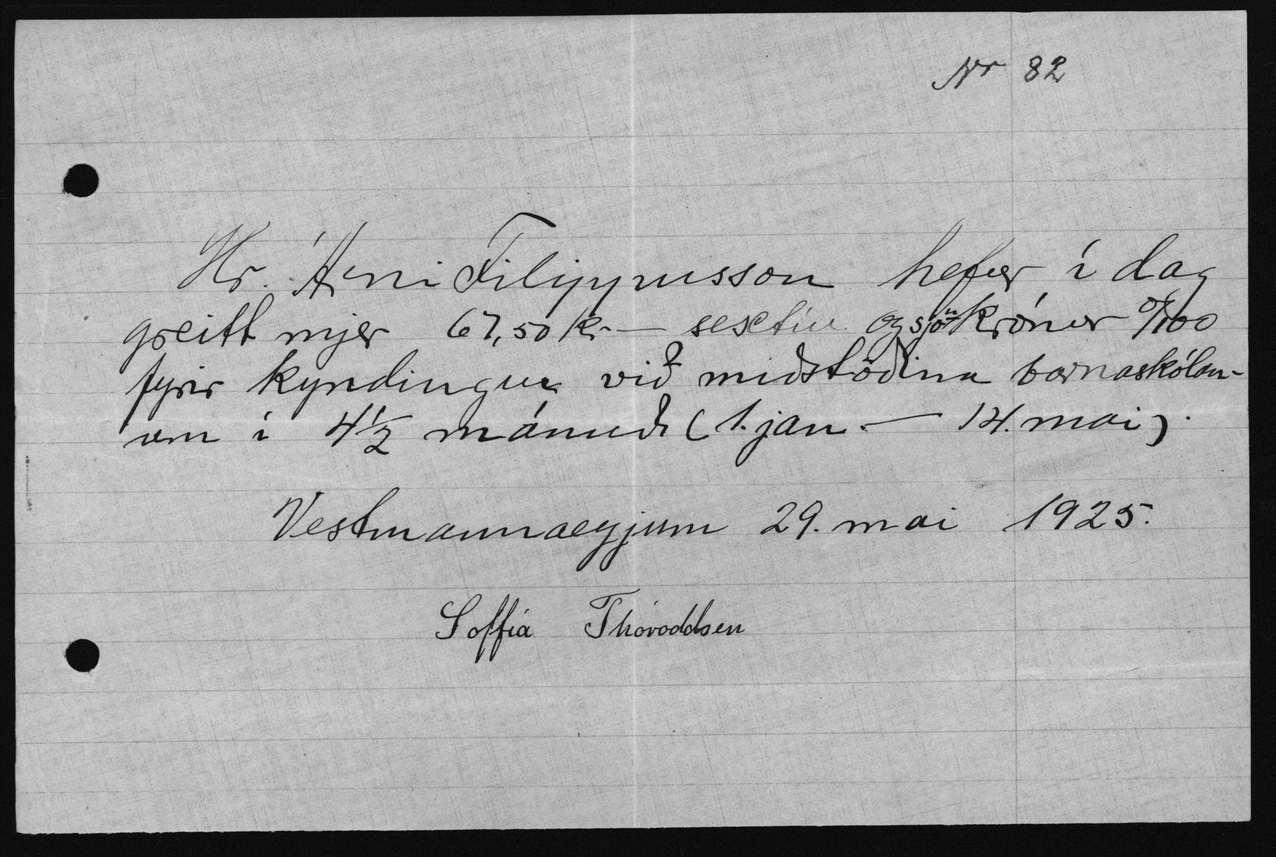 Nr 82
Hr. Árni Filippusson hefur í dag
greitt mjer 67,50 kr — sextíu og sjö krónur 50/100
fyrir kyndingu við miðstöðina barnaskólan-
um í 4 1/2 mánuð (1. jan. — 14. mai).
Vestmannaeyjum 29. mai 1925.
Soffía Thóroddsen